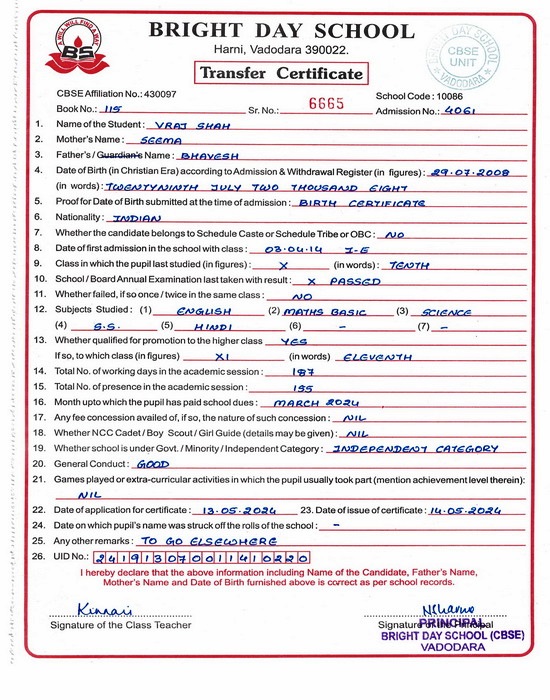 A WILL WILL FIND A WAY
BS
BRIGHT DAY SCHOOL
Harni, Vadodara 390022.
Transfer Certificate
BRIGHT DAY SCHOOL
CBSE
UNIT
VADODARA
CBSE Affiliation No.: 430097 School Code : 10086
Book No.: 115 Sr. No.: 6665 Admission No.: 4061
1. Name of the Student : VRAJ SHAH
2. Mother's Name : SEEMA
3. Father's / Guardian's Name : BHAVESH
4. Date of Birth (in Christian Era) according to Admission & Withdrawal Register (in figures) : 29.07.2008
(in words) : TWENTYNINTH JULY TWO THOUSAND EIGHT
5. Proof for Date of Birth submitted at the time of admission : BIRTH CERTIFICATE
6. Nationality : INDIAN
7. Whether the candidate belongs to Schedule Caste or Schedule Tribe or OBC : NO
8. Date of first admission in the school with class : 03.04.14 I-E
9. Class in which the pupil last studied (in figures) : X (in words) : TENTH
10. School / Board Annual Examination last taken with result : X PASSED
11. Whether failed, if so once / twice in the same class : NO
12. Subjects Studied : (1) ENGLISH (2) MATHS BASIC (3) SCIENCE
(4) S.S. (5) HINDI (6) - (7) -
13. Whether qualified for promotion to the higher class YES
If so, to which class (in figures) XI (in words) ELEVENTH
14. Total No. of working days in the academic session : 187
15. Total No. of presence in the academic session : 155
16. Month upto which the pupil has paid school dues : MARCH 2024
17. Any fee concession availed of, if so, the nature of such concession : NIL
18. Whether NCC Cadet / Boy Scout / Girl Guide (details may be given) : NIL
19. Whether school is under Govt. / Minority / Independent Category : INDEPENDENT CATEGORY
20. General Conduct : GOOD
21. Games played or extra-curricular activities in which the pupil usually took part (mention achievement level therein):
NIL
22. Date of application for certificate : 13.05.2024 23. Date of issue of certificate : 14.05.2024
24. Date on which pupil's name was struck off the rolls of the school : -
25. Any other remarks : TO GO ELSEWHERE
26. UID No.: 241913070011410220
I hereby declare that the above information including Name of the Candidate, Father's Name,
Mother's Name and Date of Birth furnished above is correct as per school records.
Signature of the Class Teacher Signature of the Principal
PRINCIPAL
BRIGHT DAY SCHOOL (CBSE)
VADODARA